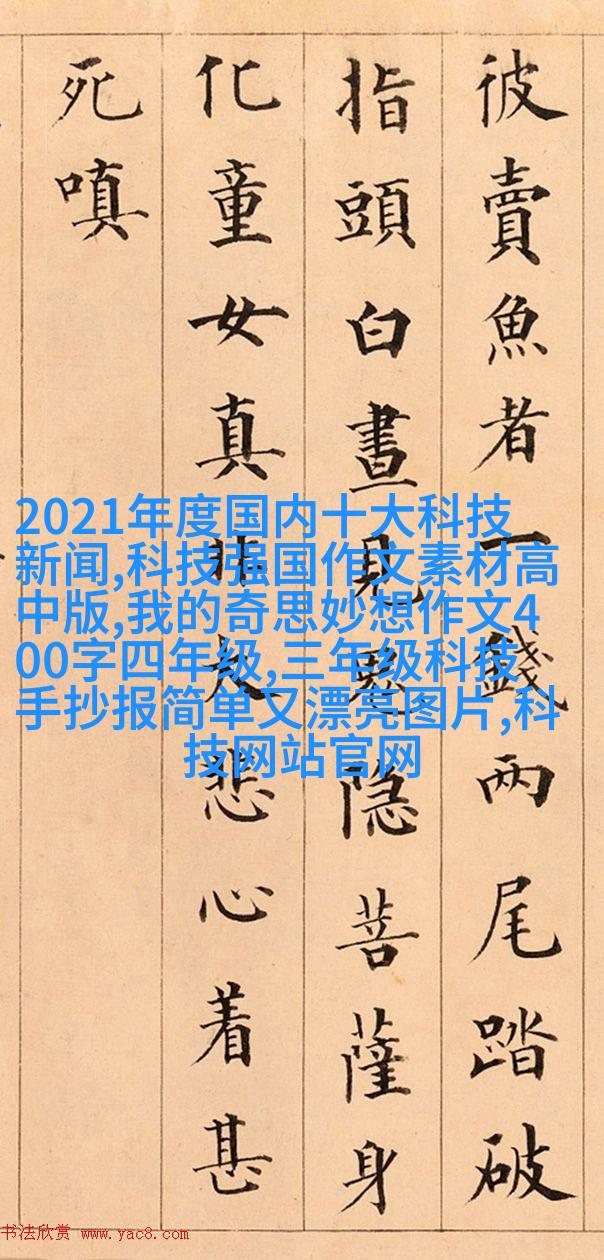 彼賣魚者一錢两尾踏破
指頭白晝見隐菩薩身
化童女真非大悲心着甚
死嗔
2021年度国内十大科技
新闻,科技强国作文素材高
中版,我的奇思妙想作文4
00字四年级,三年级科技
手抄报简单又漂亮图片,科
技网站官网
书法欣赏 www.yac8.com